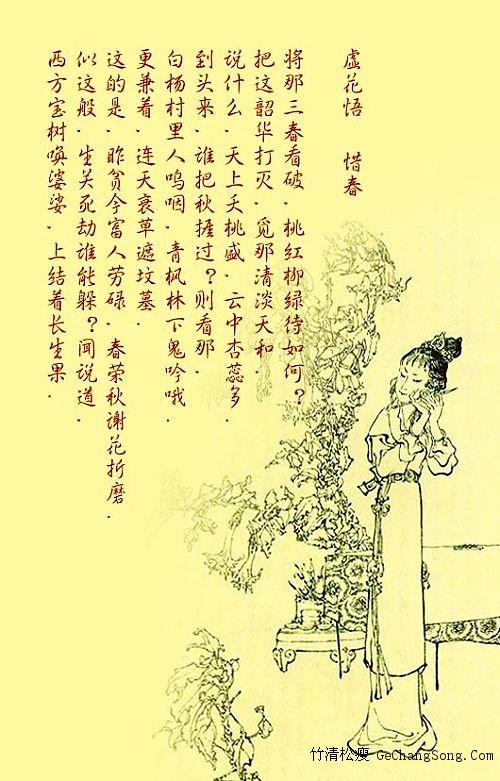 虚花悟　惜春
将那三春看破．桃红柳绿待如何？
把这韶华打灭．觅那清淡天和．
说什么．天上夭桃盛．云中杏蕊多．
到头来．谁把秋捱过？则看那．
白杨村里人呜咽．青枫林下鬼吟哦．
更兼着．连天衰草遮坟墓．
这的是．昨贫今富人劳碌．春荣秋谢花折磨．
似这般．生关死劫谁能躲？闻说道．
西方宝树唤婆娑．上结着长生果．
竹清松瘦 GeChangSong.Com